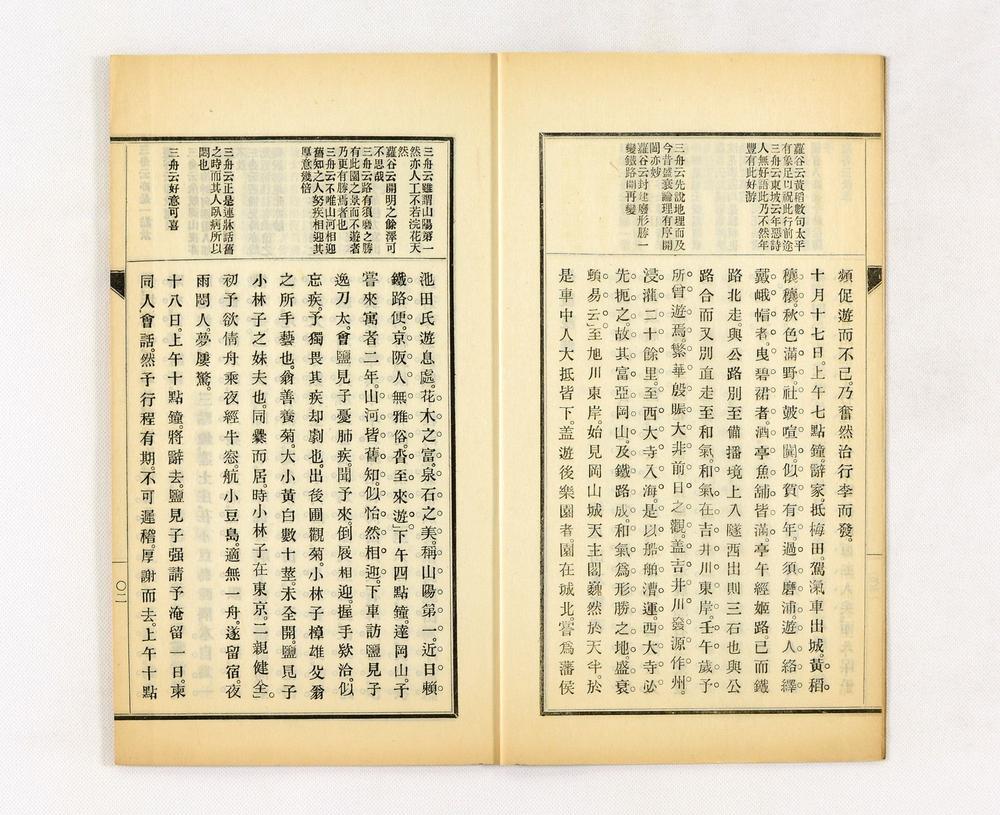 蘿谷云黃稻數句太平
有象足以祝此行前途
三舟云東坡云年惡詩
人無好語此乃不然年
豐有此好游
三舟云先說地理而及
今昔盛衰論理有序開
闔亦妙
蘿谷云封建廢形勝一
變鐵路開再變
頻促遊而不已乃奮然治行李而發。
十月十七日。上午七點鐘。辭家。抵梅田。駕滊車出城。黃稻。
穰穰。秋色滿野。社皷喧闐。似賀有年。過須磨浦。遊人絡繹。
戴峨㡌者。曳碧裙者。酒亭魚舖皆滿。亭午經姬路。已而鐵
路北走。與公路別。至備播境上。八隧西出則三石也。與公
路合而又別。直走至和氣。和氣在吉井川東岸。壬午歲予
所曾遊焉。繁華殷賑。大非前日之觀。蓋吉井川發源作州。
浸灌二十餘里。至西大寺入海。是以船舶漕運。西大寺必
先扼之。故其富亞岡山。及鐵路成。和氣爲形勝之地。盛衰
頻易云。至旭川東岸。始見岡山城天主閣巍然於天半。於
是車中人大抵皆下。蓋遊後樂園者。園在城北。嘗爲藩侯
三舟云雖謂山陽第一
然亦人工不若浣花天
然
蘿谷云開明之餘澤可
不思哉
三舟云路有須磨之勝
有此園之景而不遊者
乃更有勝焉者也
三舟云不唯山河相迎
舊知之人努疾相迎其
厚意幾倍
三舟云正是連脉話舊
之時而其人臥病所以
悶也
三舟云好意可喜
池田氏遊息處。花木之富。泉石之美。稱山陽第一。近日賴
鐵路便。京阪人無雅俗。沓至來遊。下午四點鐘。達岡山。予
嘗來寓者二年。山河皆舊知。似怡然相迎。下車訪鹽見子
逸刀太。會鹽見子憂肺疾。聞予來。倒屐相迎。握手欵洽。似
忘疾。予獨畏其疾却劇也。出後圃觀菊。小林子樟雄父翁
之所手藝也。翁善養菊。大小黃白數十莖。未全開。鹽見子
小林子之妹夫也。同爨而居。時小林子在東京。二親健全。
初予欲倩舟乘夜經牛窓。航小豆島。適無一舟。遂留宿。夜
雨悶人。夢屢驚。
十八日。上午十點鐘。將辭去。鹽見子强請予淹留一日。柬
同人會話。然予行程有期。不可遲稽。厚謝而去。上午十點
〇二